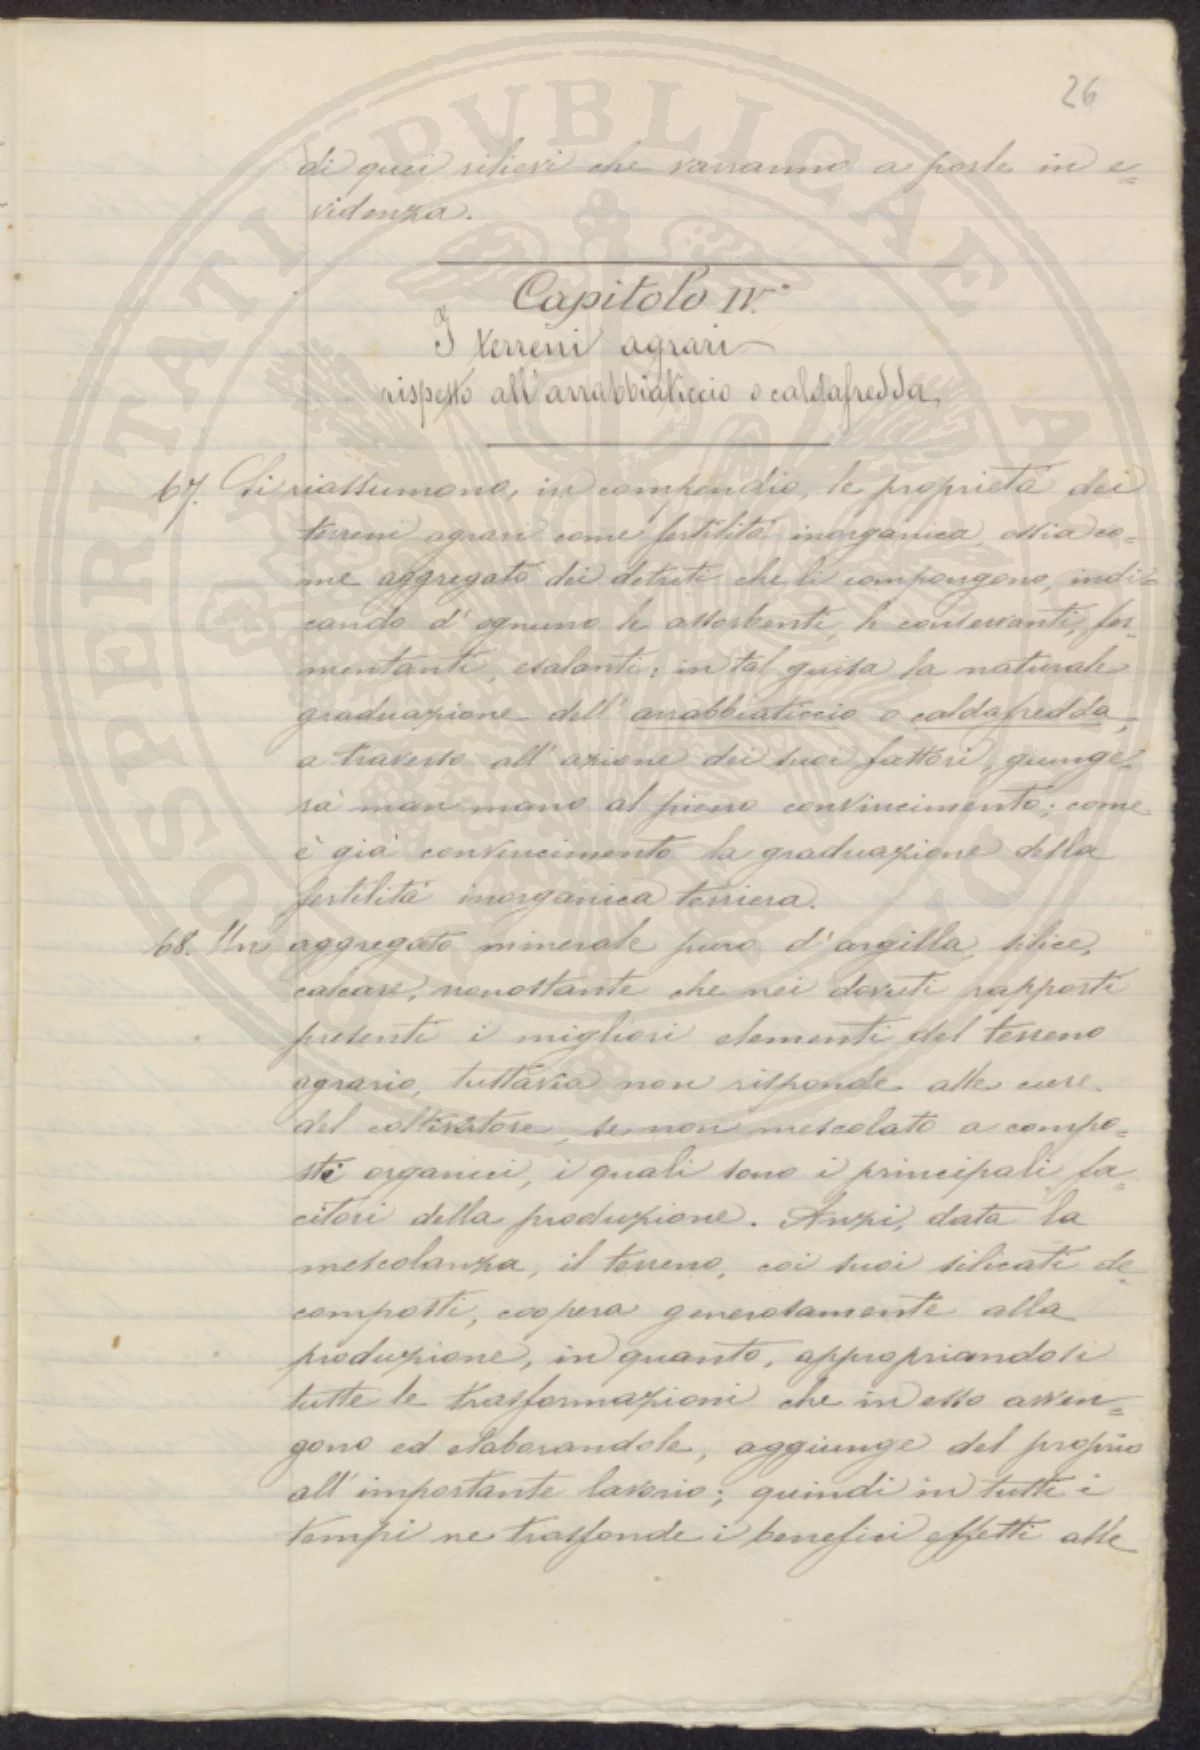 26
di quei rilievi che varranno a porle in e=
videnza.
Capitolo IV.°
I terreni agrari
rispetto all'arrabbiaticcio o caldafredda,
67. Si riassumono, in compendio, le proprietà dei
terreni agrari come fertilità inorganica, ossia co=
me aggregato dei detriti che li compongono, indi=
cando d'ognuno le assorbenti, le conservanti, fer=
mentanti, esalanti: in tal guisa la naturale
graduazione dell'arrabbiaticcio o caldafredda,
a traverso all'azione dei suoi fattori, giunge=
rà man mano al pieno convincimento; come
è già convincimento la graduazione della
fertilità inorganica terriera.
68. Un aggregato minerale puro d'argilla, silice,
calcare, nonostante che nei dovuti rapporti
presenti i migliori elementi del terreno
agrario, tuttavia non risponde alle cure
del coltivatore, se non mescolato a compo=
sti organici, i quali sono i principali fa=
citori della produzione. Anzi, data la
mescolanza, il terreno, coi suoi silicati de=
composti, coopera generosamente alla
produzione, in quanto, appropriandosi
tutte le trasformazioni che in esso avven=
gono ed elaborandole, aggiunge del proprio
all'importante lavorio; quindi in tutti i
tempi ne trasfonde i benefici effetti alle
PROSPERITATI PUBLICAE AUGENDAE